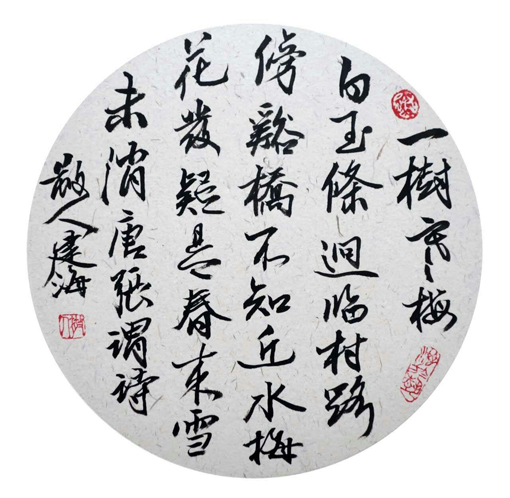 一樹寒梅
白玉條迥临村路
傍谿橋不知近水梅
花發疑是春来雪
未消唐張谓詩
散人建海